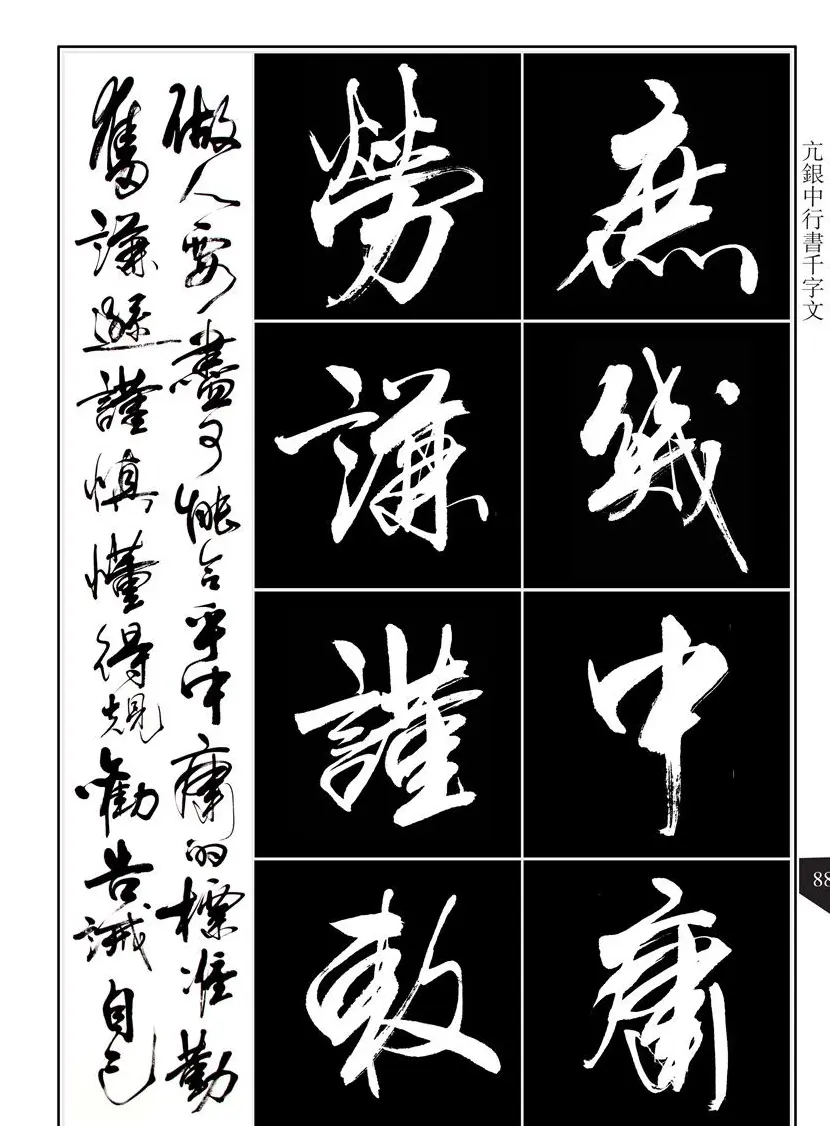 亢銀中行書千字文
88
庶幾中庸
勞謙謹敕
做人要盡可能合乎中庸的標准勤
奮謙遜謹慎懂得規勸告誡自己